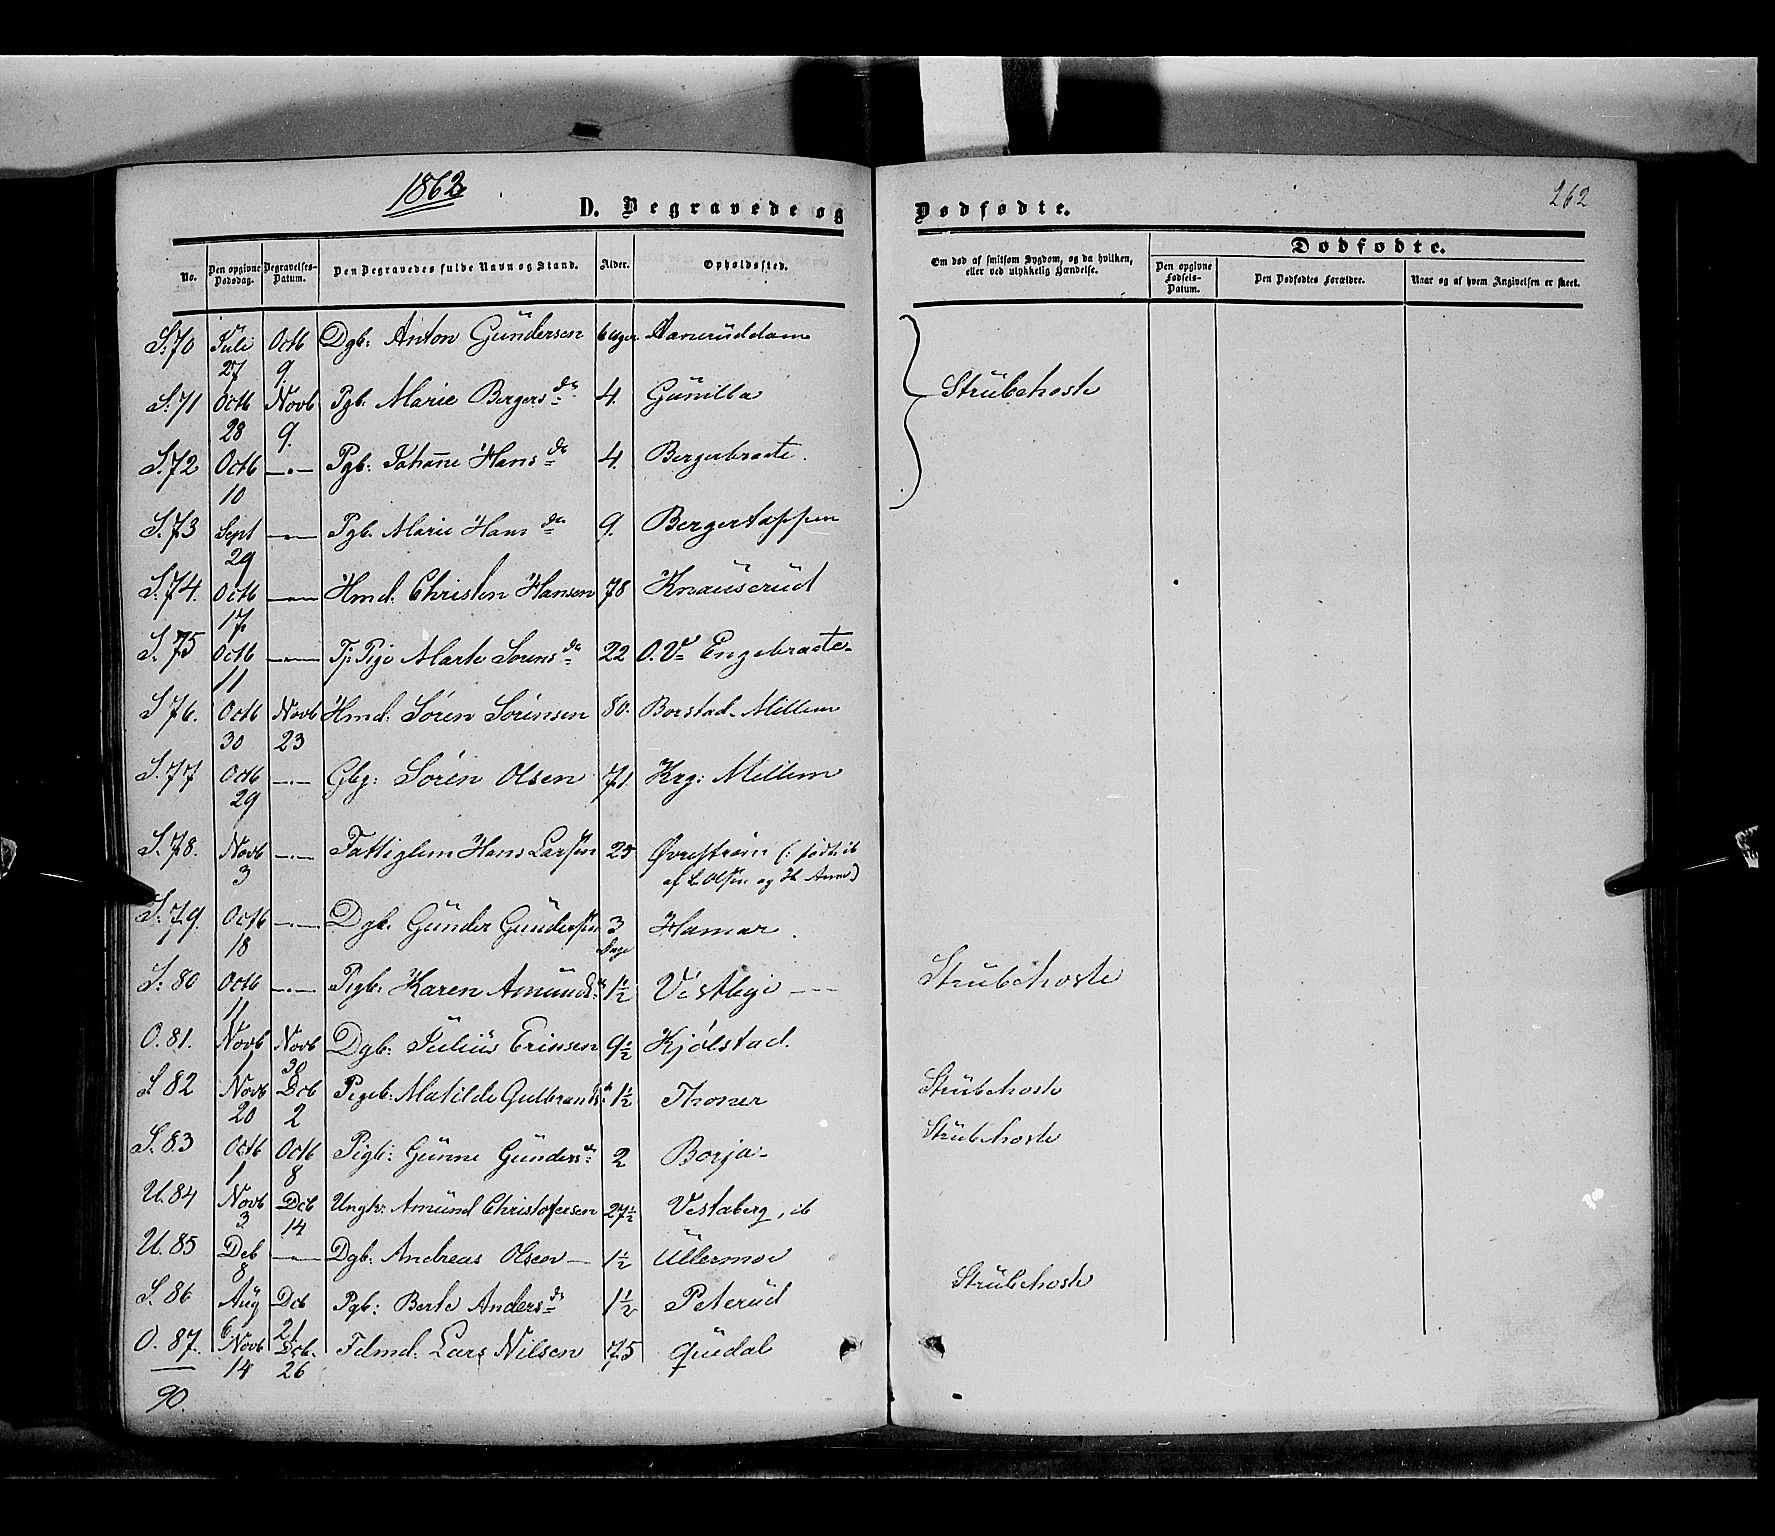 1862
D. Begravede og Dødfødte.
262
No. Den opgivne Dødsdag. Begravelses-Datum. Den Begravedes fulde Navn og Stand. Alder. Opholdssted. Om død af smitsom Sygdom, og da hvilken, eller ved ulykkelig Hændelse.
Dødfødte.
Den opgivne Fødsels-Datum. Den Dødfødtes Forældre. Naar og af hvem Angivelsen er skeet.
S. 70 Juli 27 Octb 9. Dgb: Anton Gündersen 6 Uger
S. 71 Octb 28 Novb 9. Pgb: Marie Bergersda 4. Günilba Strübehoste
S. 72 Octb 10 —"— Pgb: Johanne Hansda 4. Bergerbraate.
S. 73 Sept 29 —"— Pgb. Marie Hansda 9. Bergertappen
S. 74. Octb 17. —"— Hmd. Christen Hansen 78 Knauserüd
S. 75 Octb 11 —"— Tj. Pige Marte Sørensda 22 O. V= Engebraate
S. 76. Octb 30 Novb 23 Hmd. Sören Sörensen 80. Borstad-Mellem
S. 77 Octb 29 —"— Gbg: Sören Olsen 71. Krg: Mellem
S. 78. Novb 3 —"— Fattiglem Hans Larsen 25 Øvrestrøm
af L. Olsen og
S. 79. Octb 18 —"— Dgb. Günder Gündersen 3 Dage Hamar.
S. 80 Octb 11 —"— Pigb: Karen Amündsda 1½ Vestbye Strübehoste
O. 81. Novb 1 Novb 30 Dgb: Julius Erinsen 9½ Kjölstad.
S. 82 Novb 20 Dcb 2 Pigeb: Matilde Gulbrandsda 1½ Thoner Strübehoste
S. 83 Octb 1 Octb 8 Pigb: Günne Gündersda 2 Borja Strübehoste
U. 84 Novb 3 Dcb 14 Ungkr. Amünd Christofersen 27½ Vestaberg, ib
U. 85 Dcb 8 —"— Dgb: Andreas Olsen 1½ Üllermoe
S. 86 Aüg 6 Dcb 21 Pgb: Berte Andersda 1½ Peterüd Strübehoste
O. 87. Novb 14 Dcb. 26 Fdmd. Lars Nilsen 75
90.